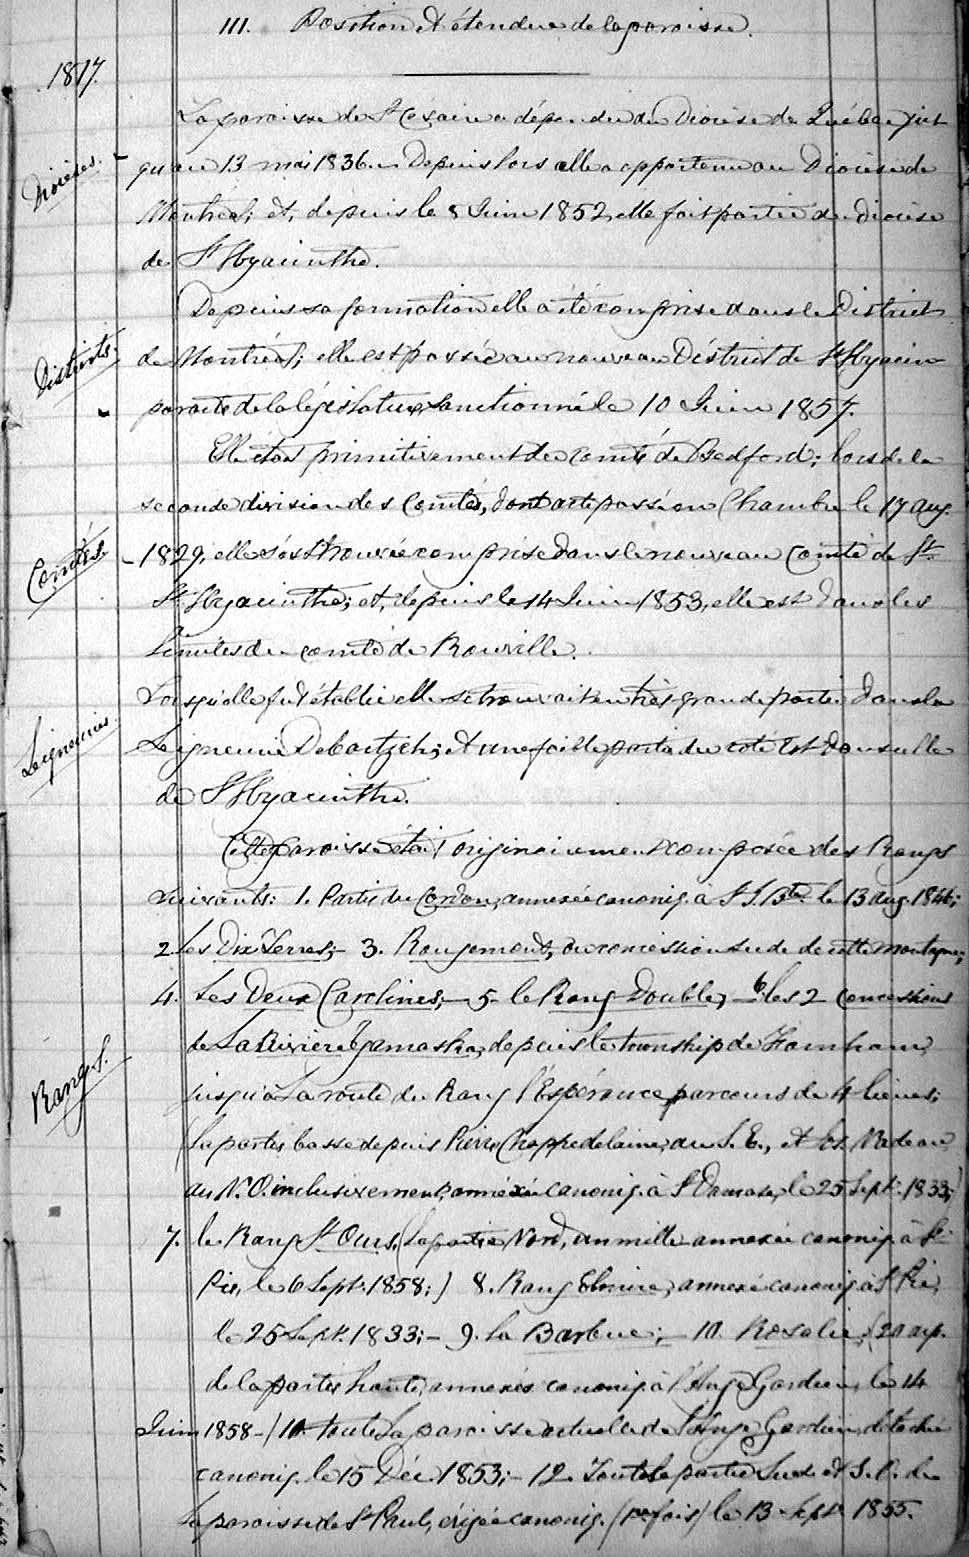 III. Position et étendue de la paroisse.
1877.
La paroisse de St Césaire a dépendu du Diocèse de Québec jus
Diocèses.
qu'au 13 mai 1836. Depuis lors elle a appartenu au Diocèse de
Montréal; et, depuis le 8 Juin 1852, elle fait partie du diocèse
de St Hyacinthe.
Depuis sa formation elle a été comprise dans le District
Districts.
de Montréal; elle est passée au nouveau District de St Hyacin
par acte de la législature, sanctionné le 10 Juin 1857.
Elle était primitivement du comté de Bedford; lors de la
seconde division des Comtés, dont acte passé en Chambre le 17 aug.
Comtés.
1829, elle s'est trouvée comprise dans le nouveau Comté de St
St Hyacinthe; et, depuis le 14 Juin 1853, elle est dans les
limites du comté de Rouville.
Lorsqu'elle fut établie elle se trouvait en très grande partie dans la
Seigneuries.
Seigneurie Debartzch; et une faible partie du côté Est dans celle
de St Hyacinthe.
Cette paroisse était originairement composée des Rangs
suivants: 1. Partie du Cordon, annexée canoniq. à St J. Bte le 13 aug. 1846;
2. Les Dix Terres; – 3. Rougemont, ou concession sud de cette montagne;
4. Les Deux Carolines; – 5. le Rang Double; – 6. les 2 concessions
de La Rivière Yamaska, depuis le township de Farnham,
Rangs.
jusqu'à la route du Rang l'Espérance, parcours de 4 lieues;
(la partie basse depuis Pierre Chappedelaine, au S. E., et Jos. Nadeau
au N. O. inclusivement, annexée canoniq. à St Damase, le 25 Sept. 1833;)
7. le Rang St Ours, (la partie Nord, un mille annexée canoniq. à St
Pie, le 6 Sept. 1858;) 8. Rang Elmire, annexé canoniq. à St Pie,
le 25 Sept. 1833; – 9. la Barbue; – 10. Rosalie; (20 arp.
de la partie haute, annexés canoniq. à l'Ange Gardien, le 14
Juin 1858 –) 10. toute la paroisse actuelle de l'Ange Gardien, détachée
canoniq. le 15 Déc. 1853; – 12. Toute la partie Sud et S. O. de
la paroisse de St Paul, érigée canoniq. (1re fois) le 13 Sept. 1855.